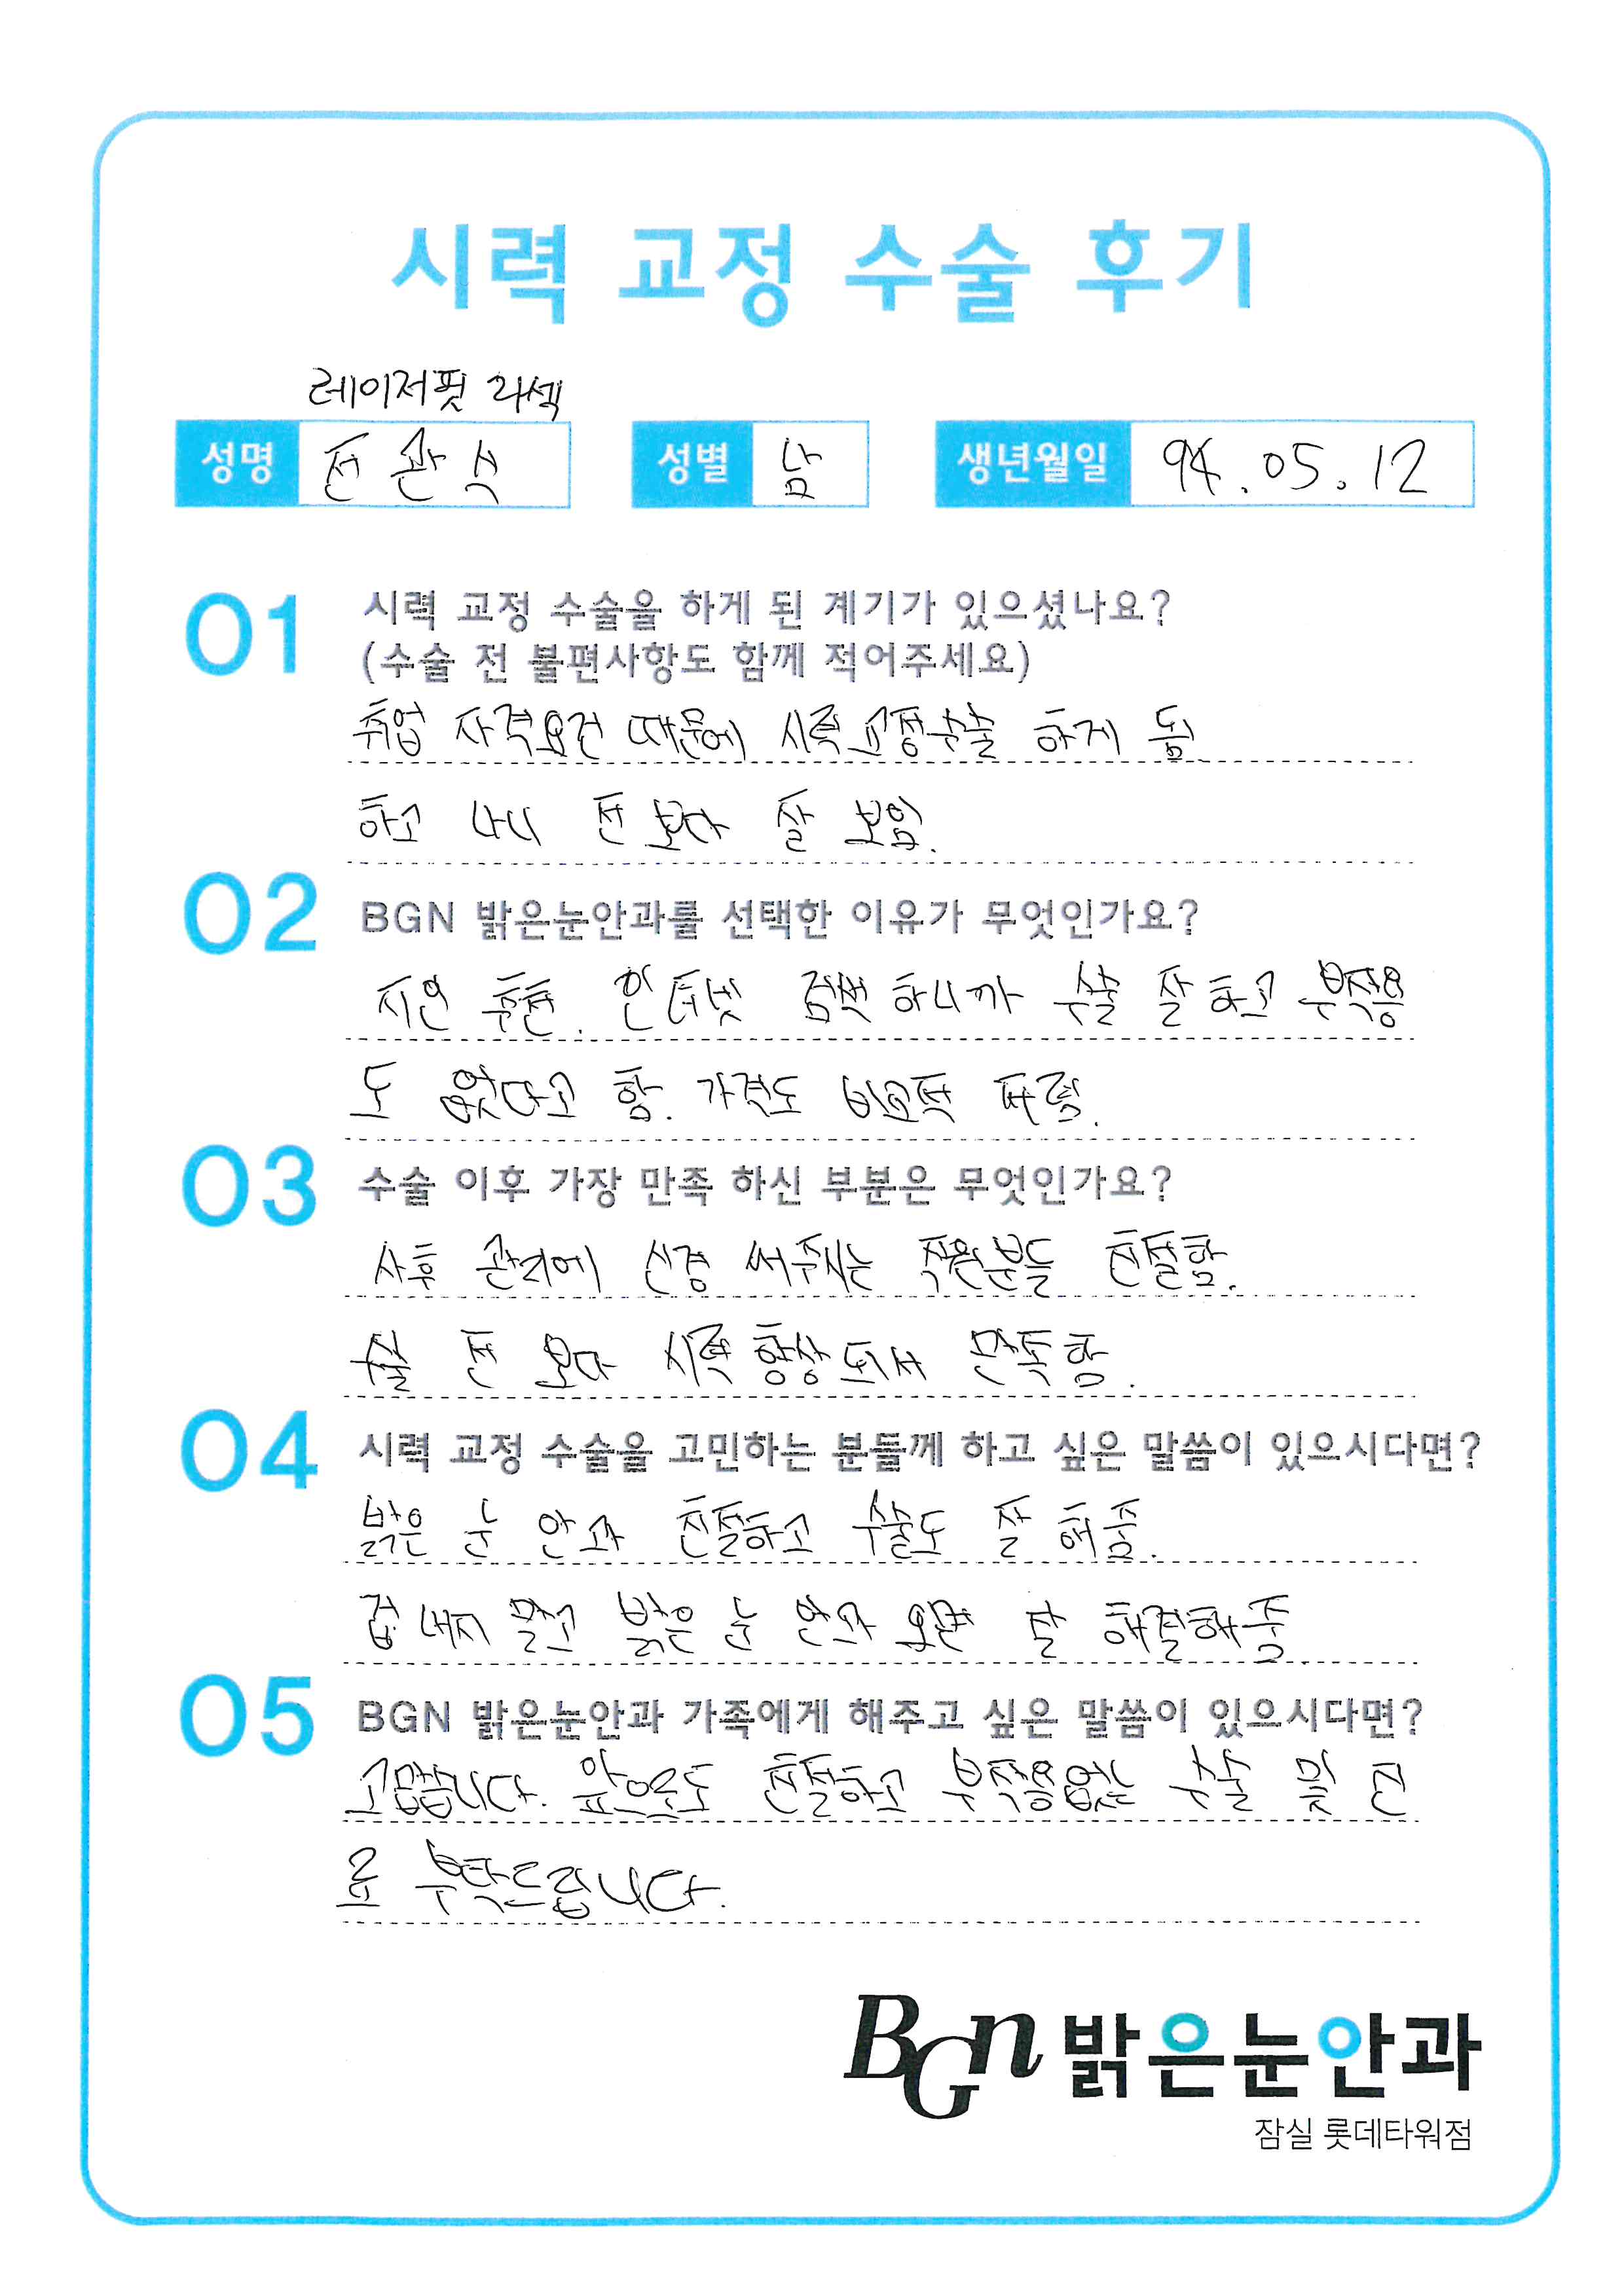 시력 교정 수술 후기
레이저핏 라섹
성명 전관식 성별 남 생년월일 94.05.12
01 시력 교정 수술을 하게 된 계기가 있으셨나요?
(수술 전 불편사항도 함께 적어주세요)
취업 자격요건 때문에 시력교정수술 하게 됨
하고 나니 전 보다 잘 보임.
02 BGN 밝은눈안과를 선택한 이유가 무엇인가요?
지인 추천. 인터넷 검색하니까 수술 잘하고 부작용
도 없다고 함. 가격도 비교적 저렴.
03 수술 이후 가장 만족 하신 부분은 무엇인가요?
사후 관리에 신경 써주시는 직원분들 친절함.
수술 전 보다 시력 향상되서 만족함.
04 시력 교정 수술을 고민하는 분들께 하고 싶은 말씀이 있으시다면?
밝은 눈 안과 친절하고 수술도 잘 해줌.
겁내지 말고 밝은 눈 안과 오면 잘 해결해줌.
05 BGN 밝은눈안과 가족에게 해주고 싶은 말씀이 있으시다면?
고맙습니다. 앞으로도 친절하고 부작용없는 수술 및 진
료 부탁드립니다.
BGN 밝은눈안과
잠실 롯데타워점